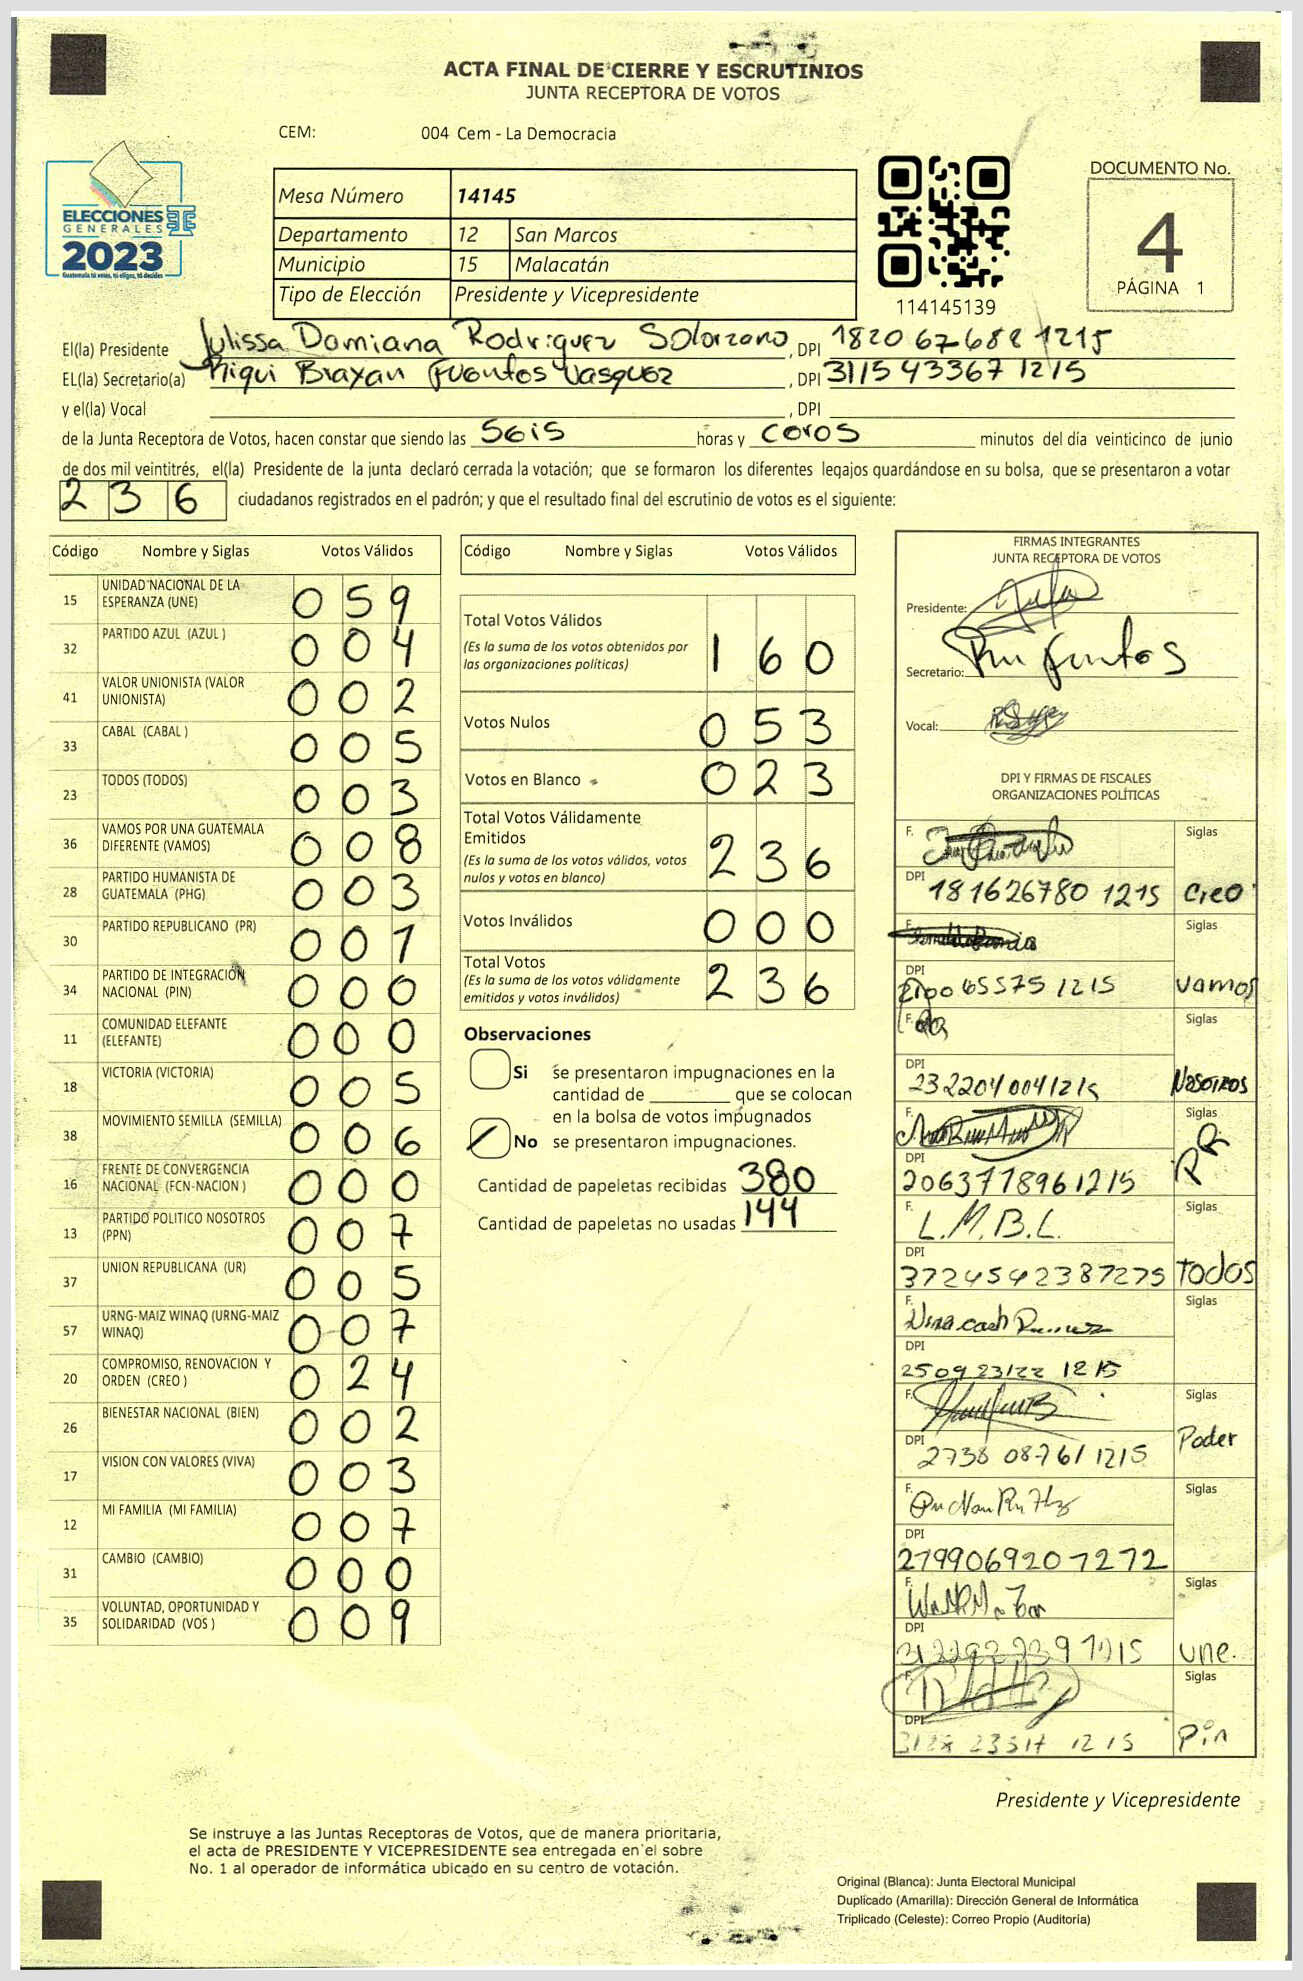 ACTA FINAL DE CIERRE Y ESCRUTINIOS
JUNTA RECEPTORA DE VOTOS
CEM: 004 Cem - La Democracia
ELECCIONES
GENERALES
2023
Guatemala tú votas, tú eliges, tú decides
Mesa Número 14145
Departamento 12 San Marcos
Municipio 15 Malacatán
Tipo de Elección Presidente y Vicepresidente
114145139
DOCUMENTO No.
4
PÁGINA 1
El(la) Presidente Julissa Damiana Rodriguez Solorzano, DPI 1820 67688 1215
EL(la) Secretario(a) Riqui Brayan Fuentes Vasquez, DPI 3115 43367 1215
y el(la) Vocal , DPI
de la Junta Receptora de Votos, hacen constar que siendo las Seis horas y ceros minutos del día veinticinco de junio
de dos mil veintitrés, el(la) Presidente de la junta declaró cerrada la votación; que se formaron los diferentes legajos guardándose en su bolsa, que se presentaron a votar
2 3 6 ciudadanos registrados en el padrón; y que el resultado final del escrutinio de votos es el siguiente:
Código Nombre y Siglas Votos Válidos
15 UNIDAD NACIONAL DE LA ESPERANZA (UNE) 0 5 9
32 PARTIDO AZUL (AZUL ) 0 0 4
41 VALOR UNIONISTA (VALOR UNIONISTA) 0 0 2
33 CABAL (CABAL ) 0 0 5
23 TODOS (TODOS) 0 0 3
36 VAMOS POR UNA GUATEMALA DIFERENTE (VAMOS) 0 0 8
28 PARTIDO HUMANISTA DE GUATEMALA (PHG) 0 0 3
30 PARTIDO REPUBLICANO (PR) 0 0 1
34 PARTIDO DE INTEGRACIÓN NACIONAL (PIN) 0 0 0
11 COMUNIDAD ELEFANTE (ELEFANTE) 0 0 0
18 VICTORIA (VICTORIA) 0 0 5
38 MOVIMIENTO SEMILLA (SEMILLA) 0 0 6
16 FRENTE DE CONVERGENCIA NACIONAL (FCN-NACION ) 0 0 0
13 PARTIDO POLITICO NOSOTROS (PPN) 0 0 7
37 UNION REPUBLICANA (UR) 0 0 5
57 URNG-MAIZ WINAQ (URNG-MAIZ WINAQ) 0 0 7
20 COMPROMISO, RENOVACION Y ORDEN (CREO ) 0 2 4
26 BIENESTAR NACIONAL (BIEN) 0 0 2
17 VISION CON VALORES (VIVA) 0 0 3
12 MI FAMILIA (MI FAMILIA) 0 0 7
31 CAMBIO (CAMBIO) 0 0 0
35 VOLUNTAD, OPORTUNIDAD Y SOLIDARIDAD (VOS ) 0 0 9
Código Nombre y Siglas Votos Válidos
Total Votos Válidos 1 6 0
(Es la suma de los votos obtenidos por
las organizaciones políticas)
Votos Nulos 0 5 3
Votos en Blanco 0 2 3
Total Votos Válidamente
Emitidos 2 3 6
(Es la suma de los votos válidos, votos
nulos y votos en blanco)
Votos Inválidos 0 0 0
Total Votos 2 3 6
(Es la suma de los votos válidamente
emitidos y votos inválidos)
Observaciones
Si se presentaron impugnaciones en la
cantidad de ________ que se colocan
en la bolsa de votos impugnados
No se presentaron impugnaciones.
Cantidad de papeletas recibidas 380
Cantidad de papeletas no usadas 144
FIRMAS INTEGRANTES
JUNTA RECEPTORA DE VOTOS
Presidente:
Secretario:
Vocal:
DPI Y FIRMAS DE FISCALES
ORGANIZACIONES POLÍTICAS
F. Siglas
DPI 181626780 1215 Creo
F. Siglas
DPI 65575 1215 vamos
F. Siglas
DPI 232204004 1215 Nosotros
F. Siglas
DPI 2063778961215 PR
F. L.M.B.L. Siglas
DPI 3724542387275 TODOS
F. Siglas
DPI 2509 23122 1215
F. Siglas
DPI 2738 08761 1215 Poder
F. Siglas
DPI 2799069207272
F. Siglas
DPI 1215 une.
F. Siglas
DPI 1215 Pin
Presidente y Vicepresidente
Se instruye a las Juntas Receptoras de Votos, que de manera prioritaria,
el acta de PRESIDENTE Y VICEPRESIDENTE sea entregada en el sobre
No. 1 al operador de informática ubicado en su centro de votación.
Original (Blanca): Junta Electoral Municipal
Duplicado (Amarilla): Dirección General de Informática
Triplicado (Celeste): Correo Propio (Auditoría)